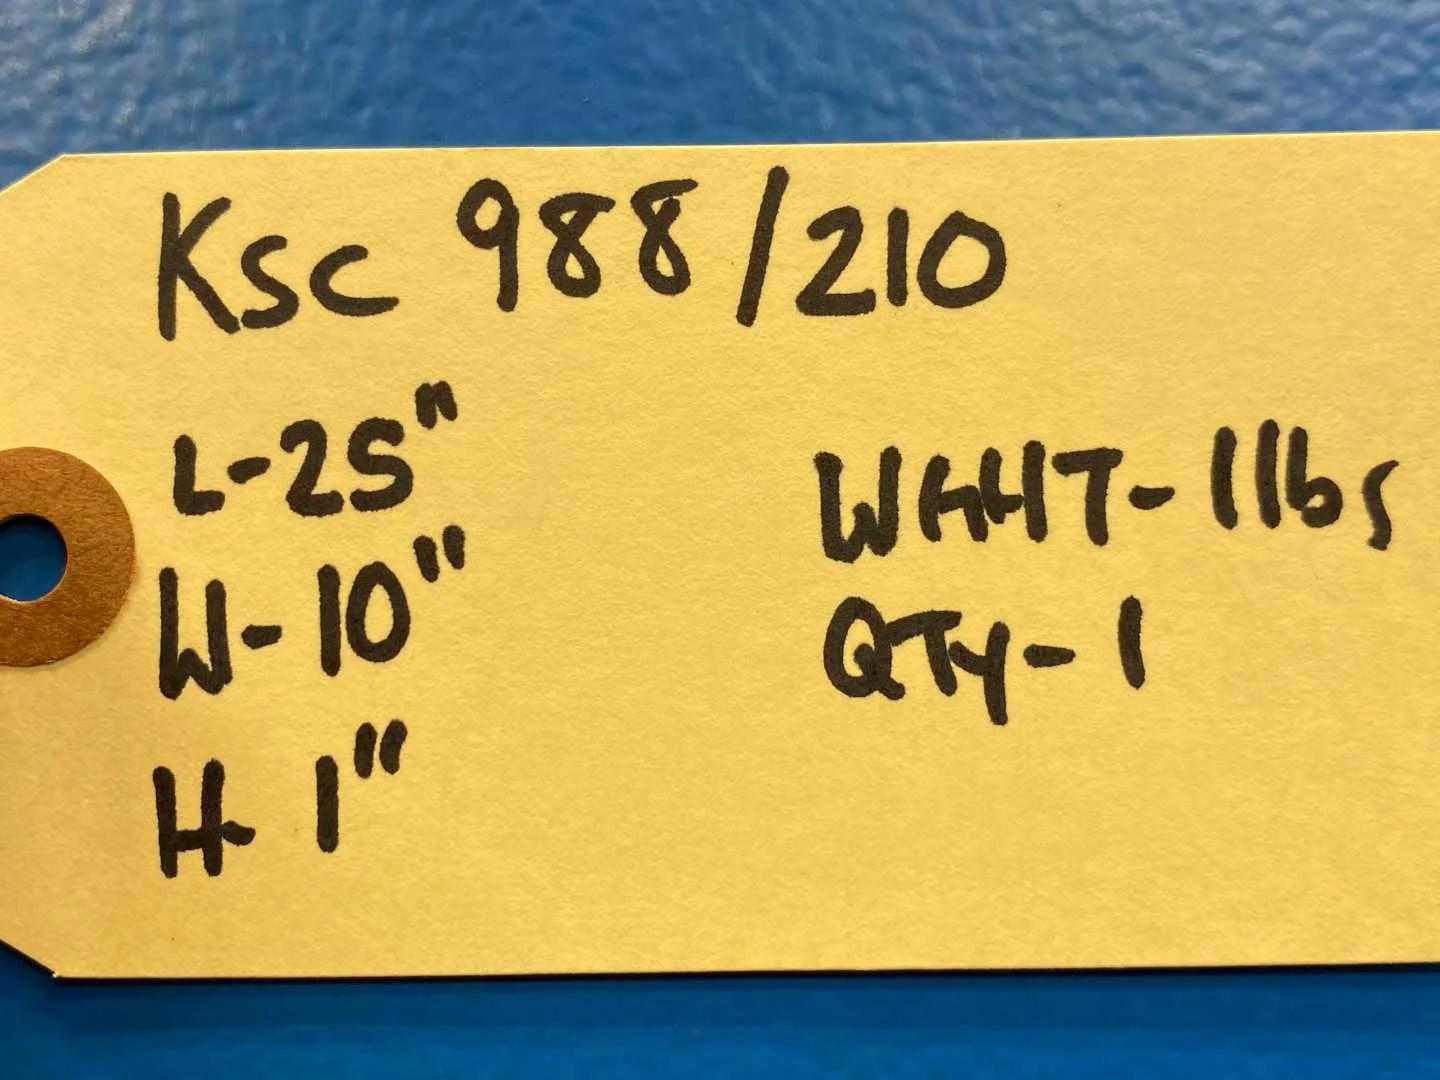 Ksc 988/210
L-25"
W-10"
H-1"
WGHT-1lbs
QTy-1